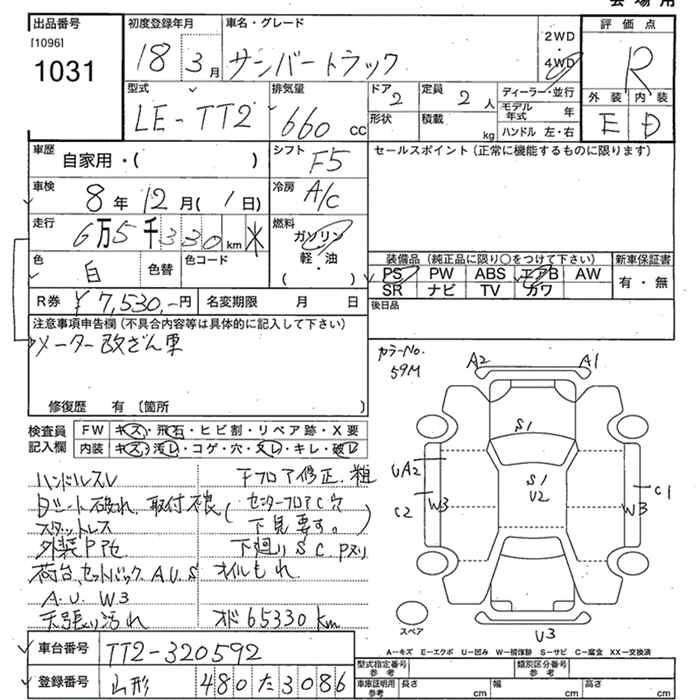 会場用
出品番号 初度登録年月 車名・グレード 評価点
[1096]
1031
18 3月 サンバートラック 2WD 4WD R
型式 排気量 ドア 2 定員 2人 ディーラー・並行 外装 内装
LE-TT2 660 cc 形状 積載 kg モデル年式 年 E D
ハンドル 左・右
車歴 自家用・( ) シフト F5 セールスポイント(正常に機能するものに限ります)
車検 8年 12月(1日) 冷房 A/C
走行 6万5千330km ※ 燃料 ガソリン 軽・油 ( )
色 白 色替 色コード 装備品(純正品に限り○をつけて下さい) 新車保証書
PS PW ABS エアB AW 有・無
SR ナビ TV カワ
R券 ¥7,530-円 名変期限 月 日 後日品
注意事項申告欄(不具合内容等は具体的に記入して下さい)
メーター改ざん車
修復歴 有(箇所 )
カラーNo.
59M
検査員記入欄 FW キズ・飛石・ヒビ割・リペア跡・X要
内装 キズ・汚レ・コゲ・穴・スレ・キレ・破レ
ハンドルスレ 下フロア修正.粗
シート破れ.取付不良 (センターフロアC穴
スタットレス 下見要す。)
外装P他 下廻りSC.Pヌリ
荷台.セットバックA.U.S オイルもれ.
A.U W3
天張り汚れ オド65330km
A2 A1
S1
UA2 S1 U2
C2 W3 W3 C1
スペア U3
A-キズ E-エクボ U-凹み W-補修跡 S-サビ C-腐食 XX-交換済
車台番号 TT2-320592
登録番号 山形 480た3086
型式指定番号 参考 類別区分番号 参考
車庫証明用 参考 長さ cm 幅 cm 高さ cm